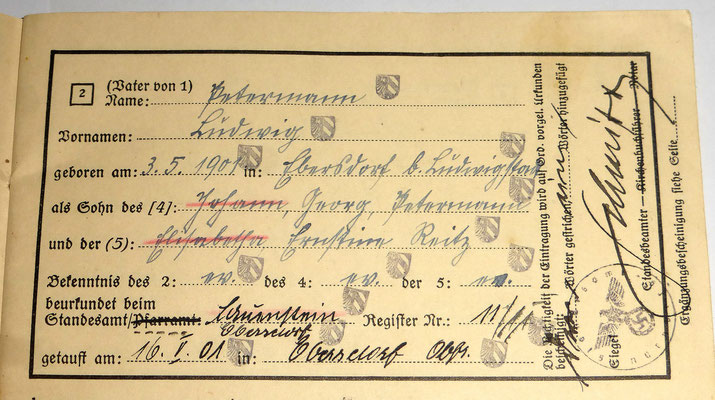 2
(Vater von 1)
Name: Petermann
Vornamen: Ludwig
geboren am: 3.5.1901 in: Ebersdorf b. Ludwigstad
als Sohn des [4]: Johann, Georg, Petermann
und der (5): Elisabetha Ernstine Reitz
Bekenntnis des 2: ev. des 4: ev. der 5: ev.
beurkundet beim
Standesamt/Pfarramt: Lauenstein Register Nr.:
Ebersdorf
getauft am: 16. V. 01 in: Ebersdorf Obfr.
Die Richtigkeit der Eintragung wird auf Grd. vorgel. Urkunden
bescheinigt. Wörter gestrichen Wörter hinzugefügt
Schmitz
Standesbeamter — Kirchenbuchführer — Notar
Siegel
Ergänzungsbescheinigung siehe Seite